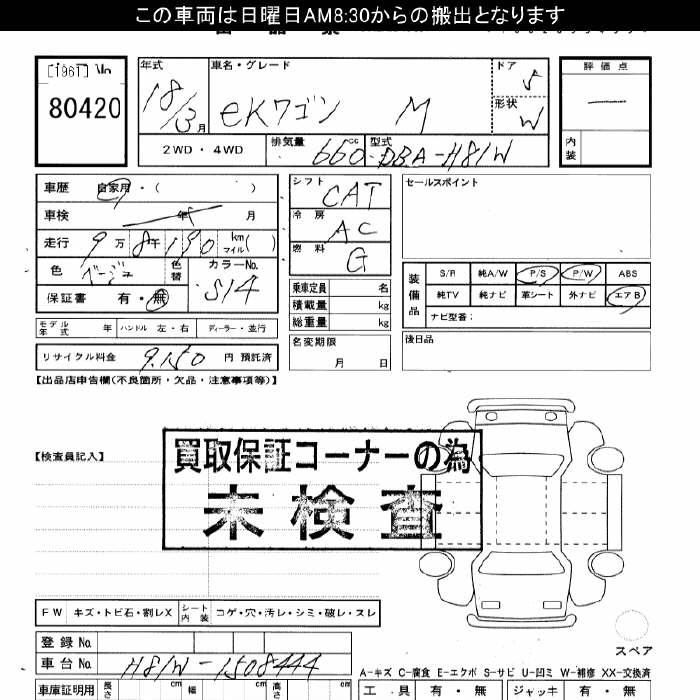 この車両は日曜日AM8:30からの搬出となります
[1961]
80420
年式 車名・グレード ドア 評価点
18/3月 eKワゴン M 5
形状 W
2WD・4WD 排気量 660cc 型式 DBA-H81W 内装
車歴 自家用・( )
車検 年 月
走行 9万8千190 km マイル( )
色 ベージュ 色替 カラーNo. S14
保証書 有・無
モデル年式 年 ハンドル 左・右 ディーラー・並行
リサイクル料金 9.150 円 預託済
シフト CAT
冷房 AC
燃料 G
乗車定員 名
積載量 kg
総重量 kg
名変期限
月 日
セールスポイント
装備品 S/R 純A/W P/S P/W ABS
純TV 純ナビ 革シート 外ナビ エアB
ナビ型番:
後日品
【出品店申告欄(不良箇所・欠品・注意事項等)】
【検査員記入】
買取保証コーナーの為
未検査
FW キズ・トビ石・割レX シート内装 コゲ・穴・汚レ・シミ・破レ・スレ
登録No
車台No H81W-1508444
スペア
A-キズ C-腐食 E-エクボ S-サビ U-凹ミ W-補修 XX-交換済
車庫証明用 長さ cm 幅 cm 高さ cm
工具 有・無 ジャッキ 有・無